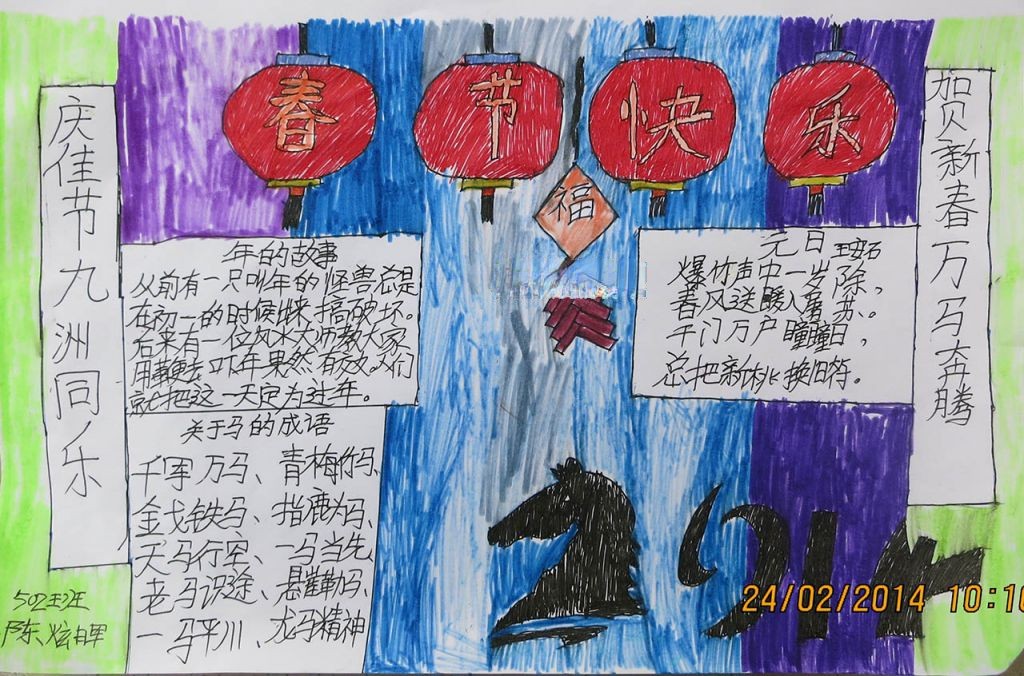 春节快乐
福
庆佳节九洲同乐
贺新春万马奔腾
年的故事
从前有一只叫年的怪兽总是
在初一的时候出来搞破坏。
后来有一位风水大师教大家
用鞭去吓年果然有效。人们
就把这一天定为过年。
元日 王安石
爆竹声中一岁除,
春风送暖入屠苏。
千门万户瞳瞳日,
总把新桃换旧符。
关于马的成语
千军万马、青梅竹马、
金戈铁马、指鹿为马、
天马行空、一马当先
老马识途、悬崖勒马、
一马平川、龙马精神
2014
502班
陈炫
24/02/2014 10:10